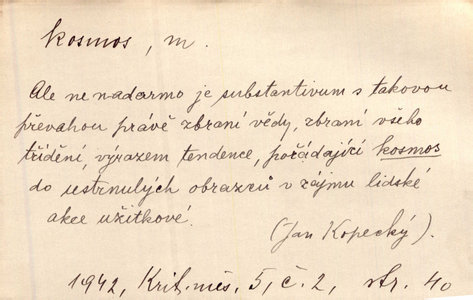 kosmos, m.
Ale ne nadarmo je substantivum s takovou
převahou právě zbraní vědy, zbraní všeho
třídění, výrazem tendence, pořádající kosmos
do ustrnulých obrazců v zájmu lidské
akce užitkové.
(Jan Kopecký).
1942, Krit. měs. 5, č. 2, str. 40